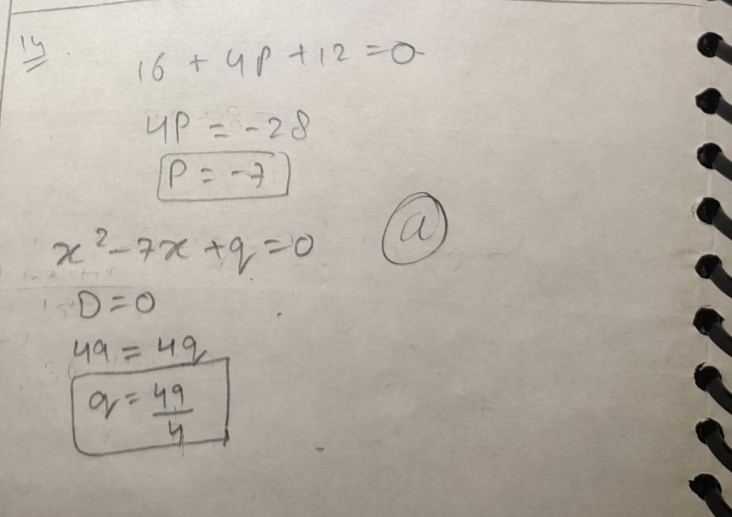 14.
16 + 4P + 12 = 0
4P = -28
P = -7
x² - 7x + q = 0
a
D = 0
49 = 4q
q = 49/4